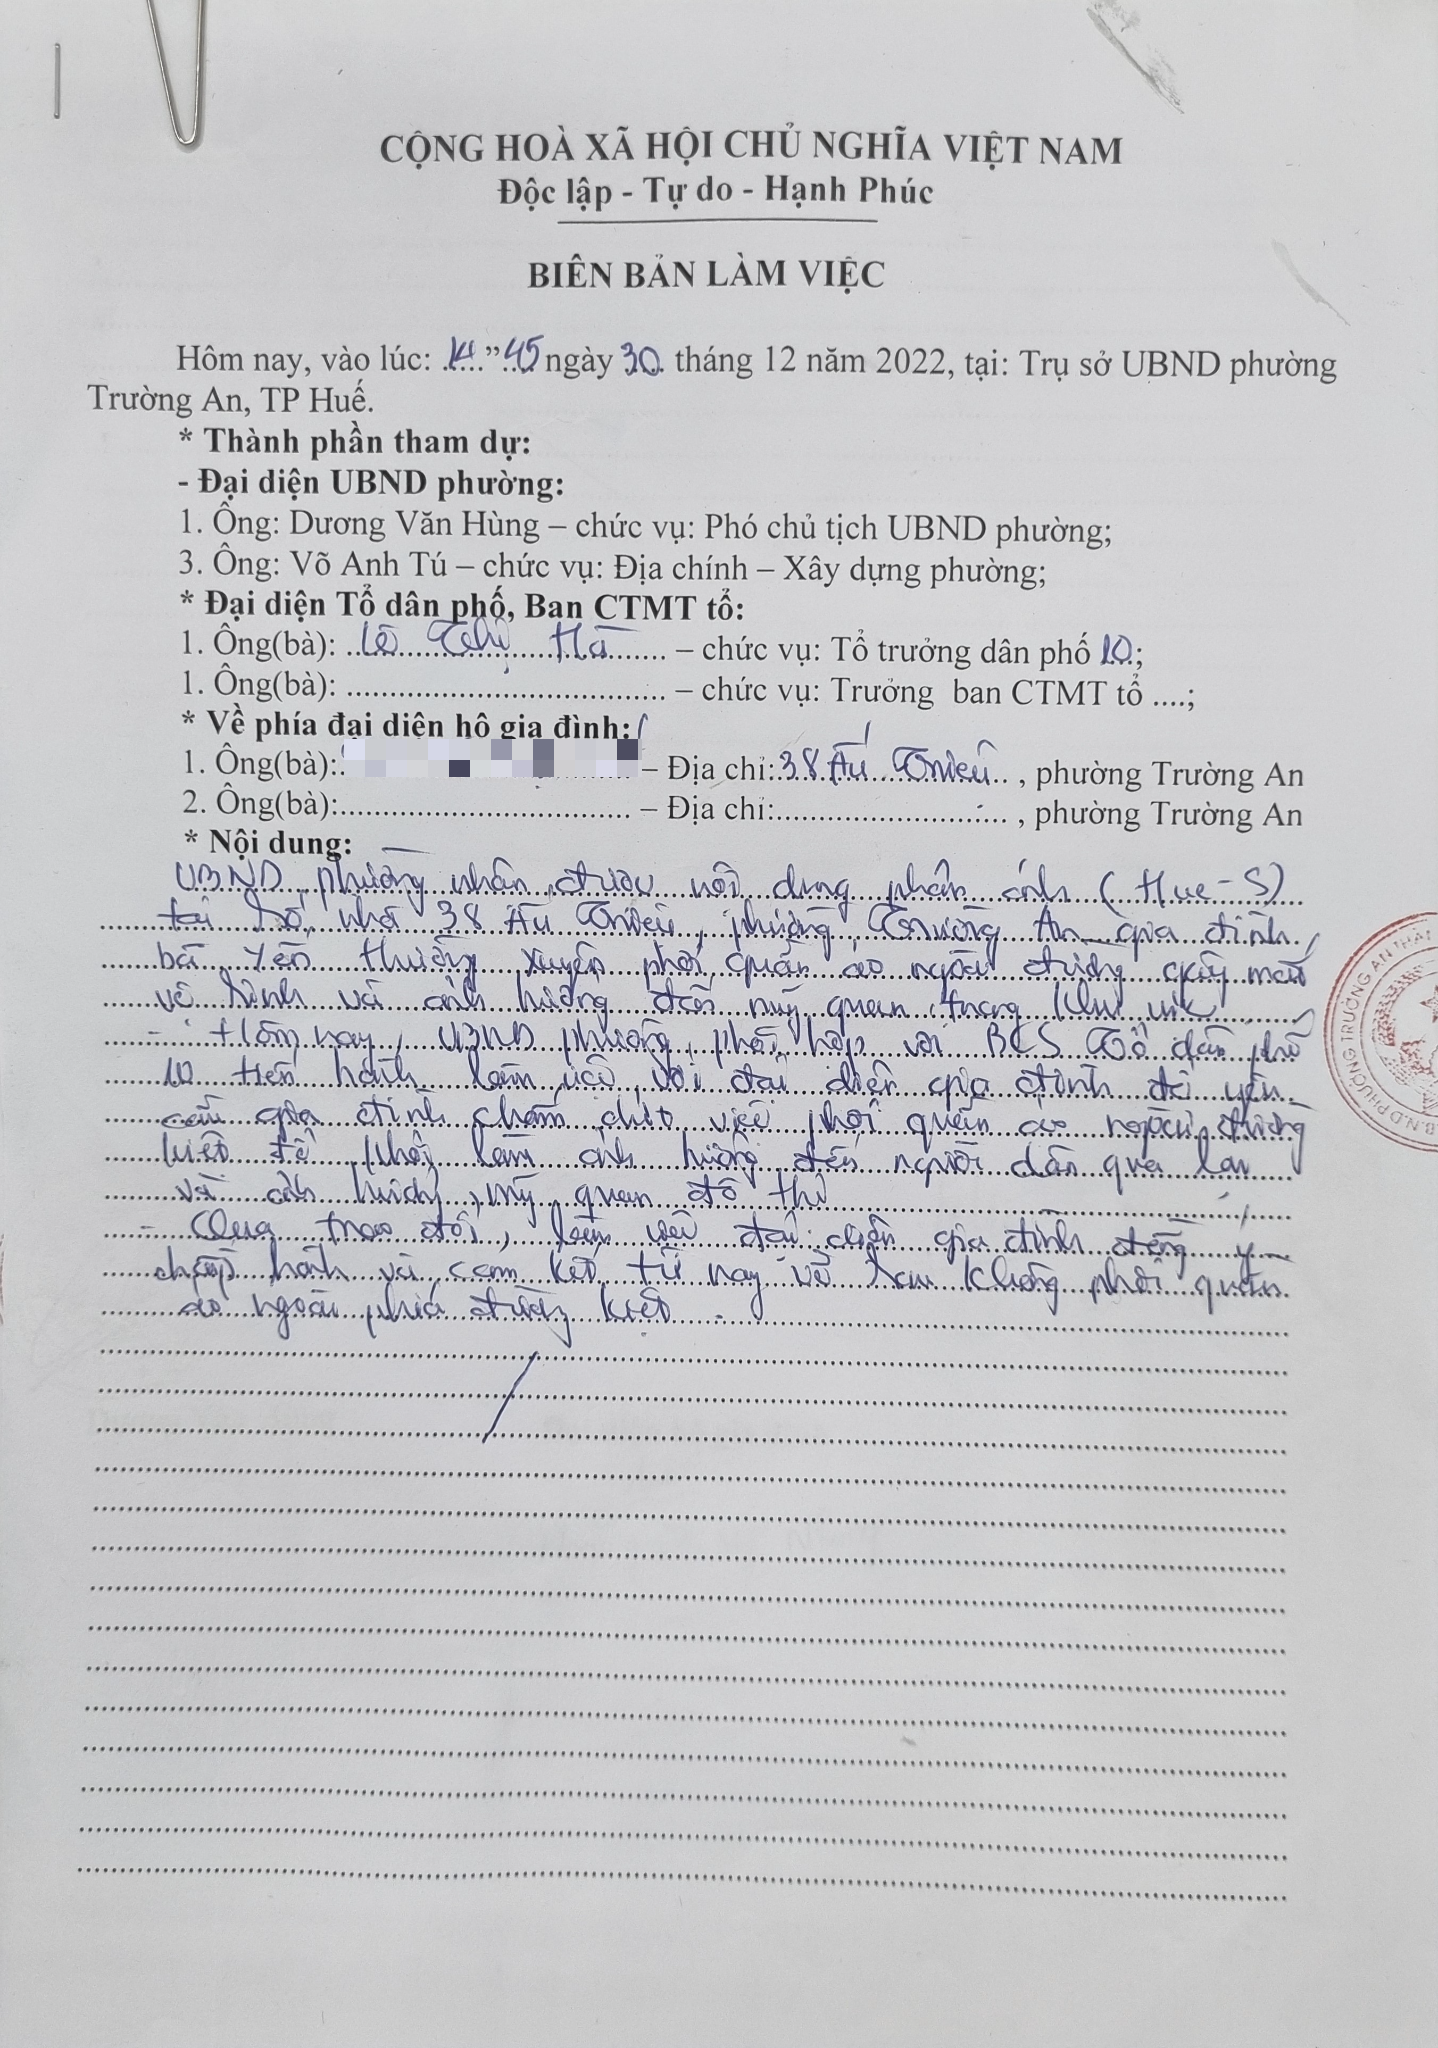 CỘNG HOÀ XÃ HỘI CHỦ NGHĨA VIỆT NAM
Độc lập - Tự do - Hạnh Phúc
BIÊN BẢN LÀM VIỆC
Hôm nay, vào lúc: 14 ” 45 ngày 30 tháng 12 năm 2022, tại: Trụ sở UBND phường
Trường An, TP Huế.
* Thành phần tham dự:
- Đại diện UBND phường:
1. Ông: Dương Văn Hùng – chức vụ: Phó chủ tịch UBND phường;
3. Ông: Võ Anh Tú – chức vụ: Địa chính – Xây dựng phường;
* Đại diện Tổ dân phố, Ban CTMT tổ:
1. Ông(bà): Lê Thị Hà – chức vụ: Tổ trưởng dân phố 10;
1. Ông(bà): ........ – chức vụ: Trưởng ban CTMT tổ ....;
* Về phía đại diện hộ gia đình:
1. Ông(bà): – Địa chỉ: 38 Ấu Triệu, phường Trường An
2. Ông(bà): ........ – Địa chỉ: ........ , phường Trường An
* Nội dung:
UBND phường nhận được nội dung phản ánh (Hue-S)
tại số nhà 38 Ấu Triệu, phường Trường An gia đình
bà Yến thường xuyên phơi quần áo ngoài đường gây mất
vệ sinh và ảnh hưởng đến mỹ quan trong khu vực
- Hôm nay, UBND phường phối hợp với BCS Tổ dân phố
10 tiến hành làm việc với đại diện gia đình để yêu
cầu gia đình chấm dứt việc phơi quần áo ngoài đường
kiệt để khỏi làm ảnh hưởng đến người dân qua lại
và ảnh hưởng mỹ quan đô thị
- Qua trao đổi, làm việc đại diện gia đình đồng ý
chấp hành và cam kết từ nay về sau không phơi quần
áo ngoài phía đường kiệt.
U.B.N.D PHƯỜNG TRƯỜNG AN THÀNH